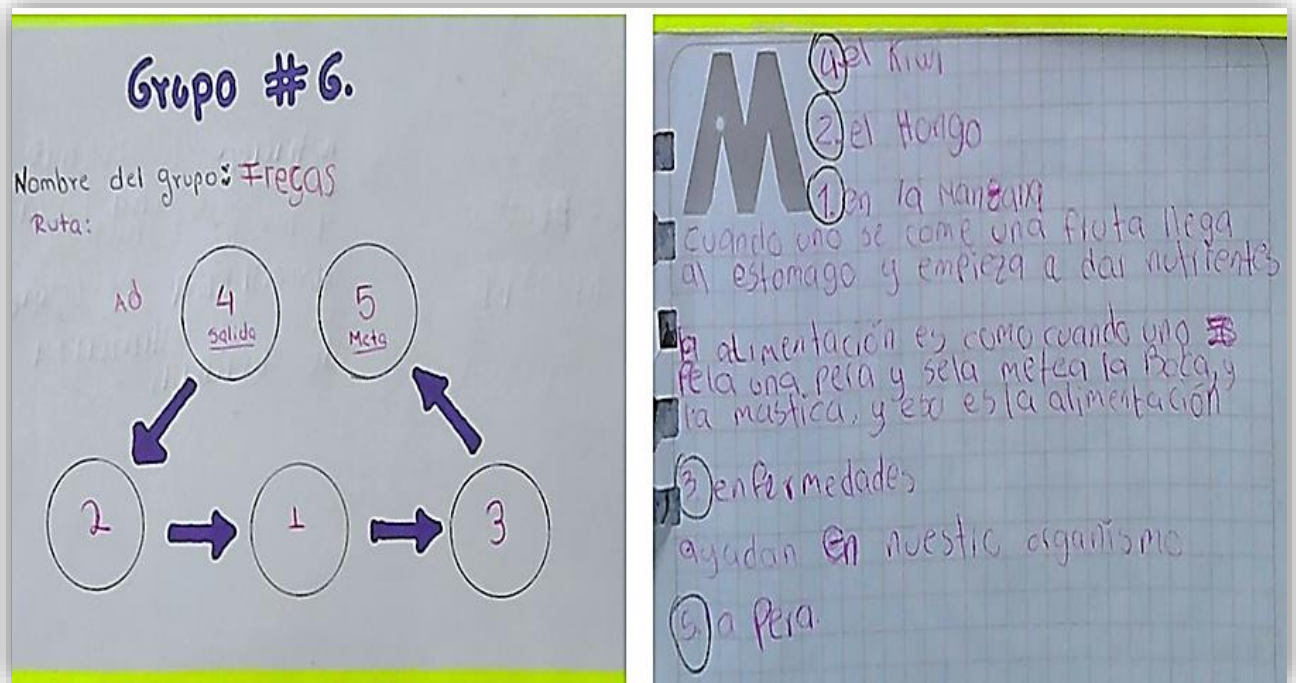 Grupo # 6.
Nombre del grupo: Fregas
Ruta:
Ad
4
Salida
5
Meta
2
1
3
4. el Kiwi
2. el Hongo
1. en la
cuando uno se come una fruta llega
al estomago y empieza a dar nutrientes
alimentación es como cuando uno
Pela una pera y sela mete a la Boca, y
la mastica, y eso es la alimentación
3 enfermedades
ayudan en nuestro organismo
5. a Pera.